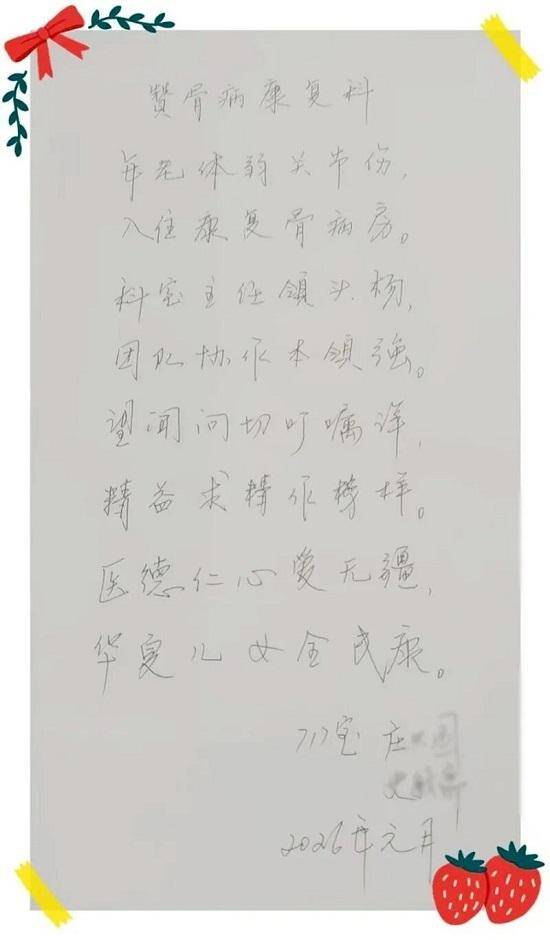 赞骨病康复科
年老体弱关节伤,
入住康复骨病房。
科室主任领头杨,
团队协作本领强。
望闻问切叮嘱详,
精益求精作榜样。
医德仁心爱无疆,
华夏儿女全民康。
庄
2026年元月